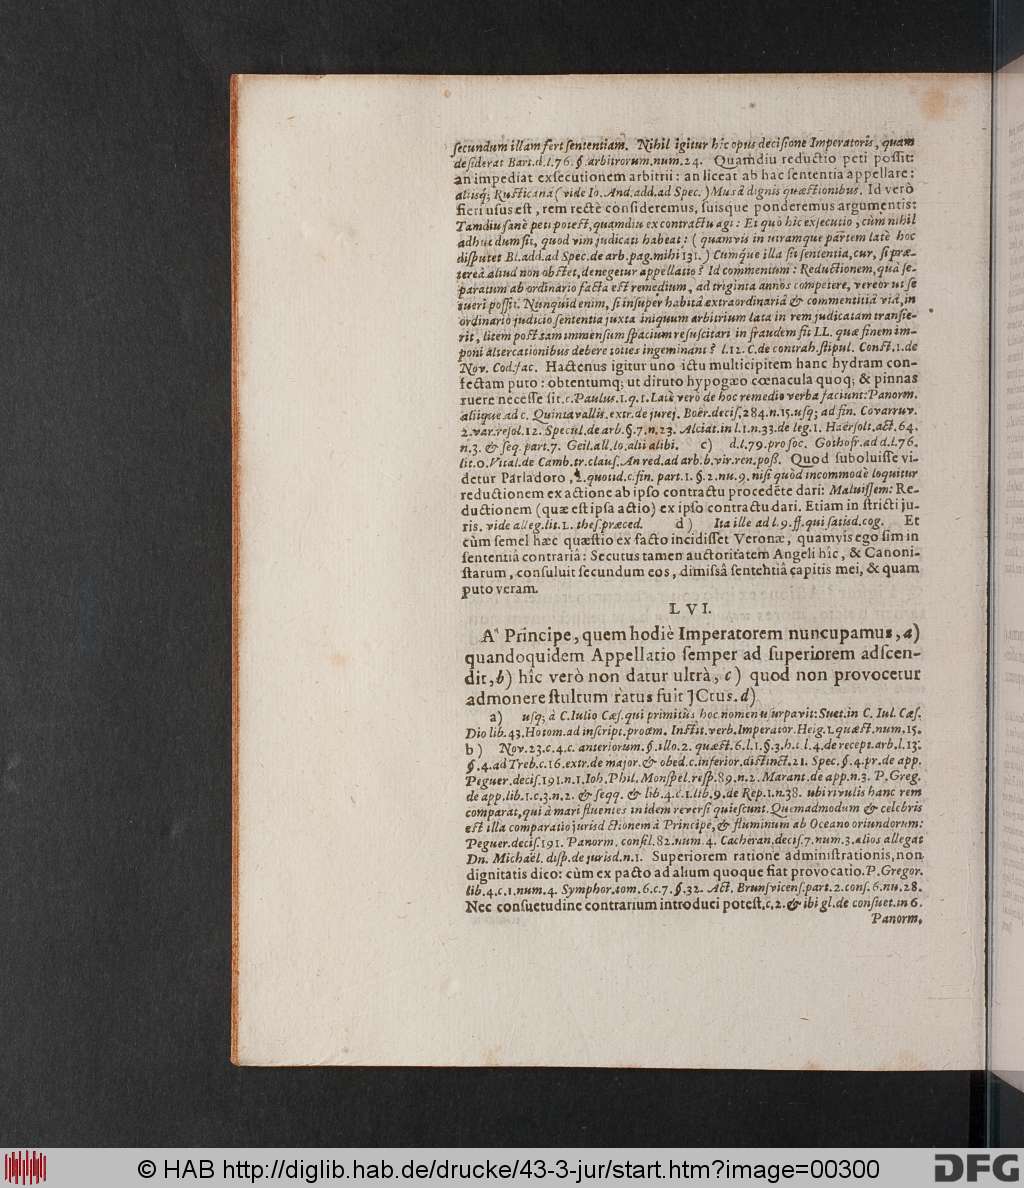 secundum illam fert sententiam. Nihil igitur hîc opus decisione Imperatoris, quam
desiderat Bart. d. l. 76. §. arbitrorum. num. 24. Quamdiu reductio peti possit:
an impediat exsecutionem arbitrii: an liceat ab hac sententia appellare:
aliisq; Rusticana (vide Io. And. add. ad Spec.) Musâ dignis quæstionibus. Id verò
fieri usus est, rem rectè consideremus, suisque ponderemus argumentis:
Tamdiu sanè peti potest, quamdiu ex contractu agi: Et quò hîc exsecutio, cùm nihil
adhuc dum sit, quod vim judicati habeat: (quamvis in utramque partem latè hoc
disputet Bl. add. ad Spec. de arb. pag. mihi 131.) Cumq́ue illa sit sententia, cur, si præ-
tereà aliud non obstet, denegetur appellatio? Id commentum: Reductionem, quà se-
paratum ab ordinario facta est remedium, ad triginta annos competere, vereor ut se
tueri possit. Nunquid enim, si insuper habitâ extraordinariâ & commentitiâ viâ, in
ordinario judicio sententia juxta iniquum arbitrium lata in rem judicatam transie-
rit, litem post tam immensum spacium resuscitari in fraudem sit LL. quæ finem im-
poni altercationibus debere toties ingeminant? l. 12. C. de contrah. stipul. Const. 1. de
Nov. Cod. fac. Hactenus igitur uno ictu multicipitem hanc hydram con-
fectam puto: obtentumq; ut diruto hypogæo cœnacula quoq; & pinnas
ruere necesse sit. c. Paulus. 1. q. 1. Latè verò de hoc remedio verba faciunt: Panorm.
aliique ad c. Quintavallis. extr. de jurej. Boër. decis. 284. n. 15. usq; ad fin. Covarruv.
2. var. resol. 12. Specul. de arb. §. 7. n. 23. Alciat. in l. 1. n. 33. de leg. 1. Haersolt. act. 64.
n. 3. & seq. part. 7. Geil. all. lo. alii alibi. c) d. l. 79. pro soc. Gothofr. ad d. l. 76.
lit. o. Vital. de Camb. tr. claus. An red. ad arb. b. vir. ren. poß. Quod suboluisse vi-
detur Parladoro, 2. quotid. c. fin. part. 1. §. 2. nu. 9. nisi quòd incommodè loquitur
reductionem ex actione ab ipso contractu procedẽte dari: Maluissem: Re-
ductionem (quæ est ipsa actio) ex ipso contractu dari. Etiam in stricti ju-
ris. vide alleg. lit. 1. thes. præced. d) Ita ille ad l. 9. ff. qui satisd. cog. Et
cùm semel hæc quæstio ex facto incidisset Veronæ, quamvis ego sim in
sententiâ contrariâ: Secutus tamen auctoritatem Angeli hîc, & Canoni-
starum, consuluit secundum eos, dimissâ sententiâ capitis mei, & quam
puto veram.
LVI.
A Principe, quem hodiè Imperatorem nuncupamus, a)
quandoquidem Appellatio semper ad superiorem adscen-
dit, b) hîc verò non datur ultrà, c) quod non provocetur
admonere stultum ratus fuit JCtus. d)
a) usq; à C. Iulio Cæs. qui primitùs hoc nomen usurpavit: Suet. in C. Iul. Cæs.
Dio lib. 43. Hotom. ad inscript. proœm. Instit. verb. Imperator. Heig. 1. quæst. num. 15.
b) Nov. 23. c. 4. c. anteriorum. §. illo. 2. quæst. 6. l. 1. §. 3. h. t. l. 4. de recept. arb. l. 13.
§. 4. ad Treb. c. 16. extr. de major. & obed. c. inferior. distinct. 21. Spec. §. 4. pr. de app.
Peguer. decis. 191. n. 1. Ioh. Phil. Monspel. resp. 89. n. 2. Marant. de app. n. 3. P. Greg.
de app. lib. 1. c. 3. n. 2. & seqq. & lib. 4. c. 1. lib. 9. de Rep. 1. n. 38. ubi rivulis hanc rem
comparat, qui à mari fluentes in idem reversi quiescunt. Quemadmodum & celebris
est illa comparatio jurisdictionem à Principe, & fluminum ab Oceano oriundorum:
Peguer. decis. 191. Panorm. consil. 82. num. 4. Cacheran. decis. 7. num. 3. alios allegat
Dn. Michaël. disp. de jurisd. n. 1. Superiorem ratione administrationis, non
dignitatis dico: cùm ex pacto ad alium quoque fiat provocatio. P. Gregor.
lib. 4. c. 1. num. 4. Symphor. tom. 6. c. 7. §. 32. Act. Brunsvicens. part. 2. cons. 6. nu. 28.
Nec consuetudine contrarium introduci potest. c. 2. & ibi gl. de consuet. in 6.
Panorm.
© HAB http://diglib.hab.de/drucke/43-3-jur/start.htm?image=00300
DFG